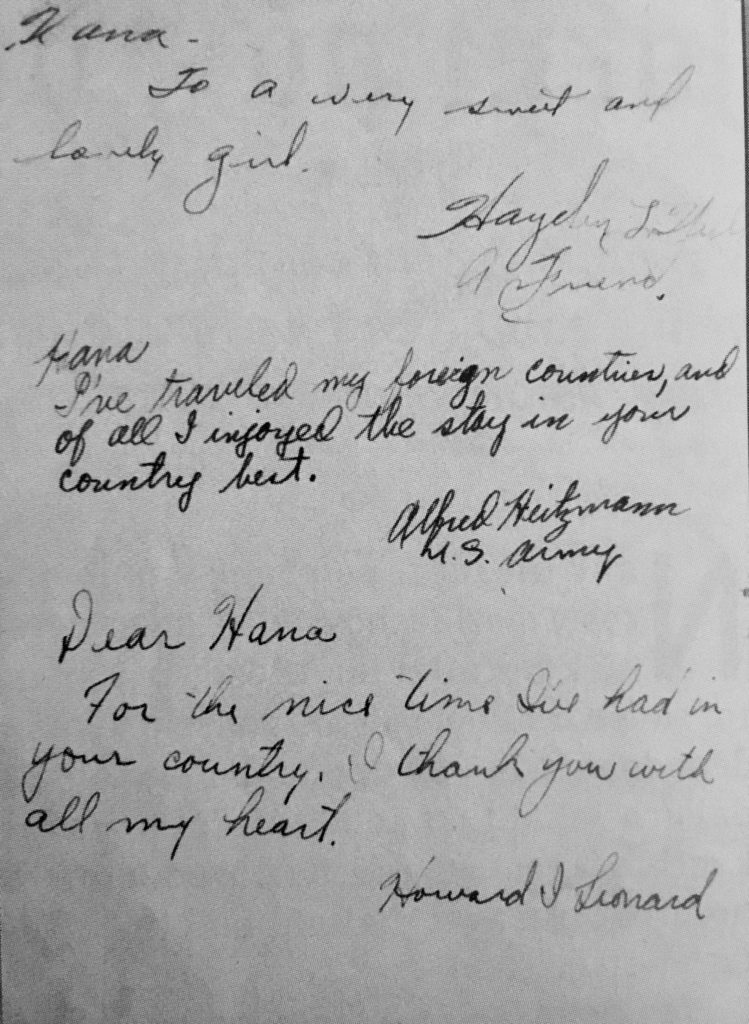 Hana -
To a very sweet and
lovely girl.
Hayden
A Friend.
Hana
I've traveled my foreign countries, and
of all I injoyed the stay in your
country best.
Alfred Heitzmann
U.S. Army
Dear Hana
For the nice time I've had in
your country. I thank you with
all my heart.
Howard I Leonard